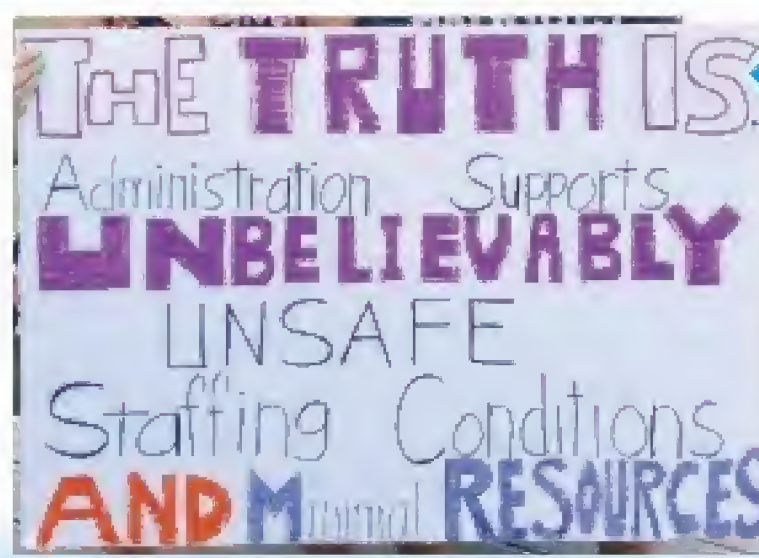 THE TRUTH IS
Administration Supports
UNBELIEVABLY
UNSAFE
Staffing Conditions
AND Minimal RESOURCES